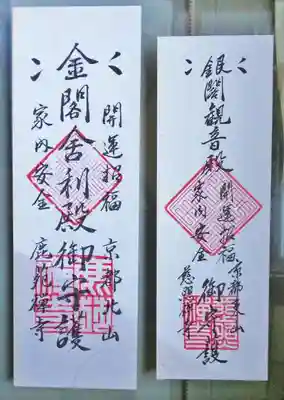 開運招福 京都北山
金閣舎利殿御守護
家内安全 鹿苑禅寺
開運招福 京都東山
銀閣観音殿 御守護
家内安全 慈照禅寺